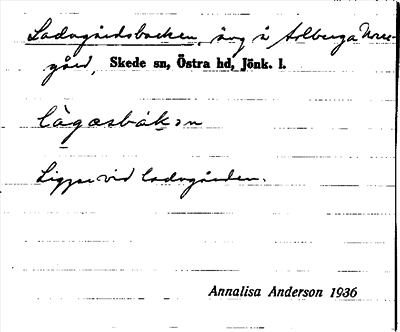 Ladugårdsbacken, äng å Arlberga Norre-
gård, Skede sn, Östra hd, Jönk. l.
làgasbákən
Ligger vid ladugården.
Annalisa Anderson 1936